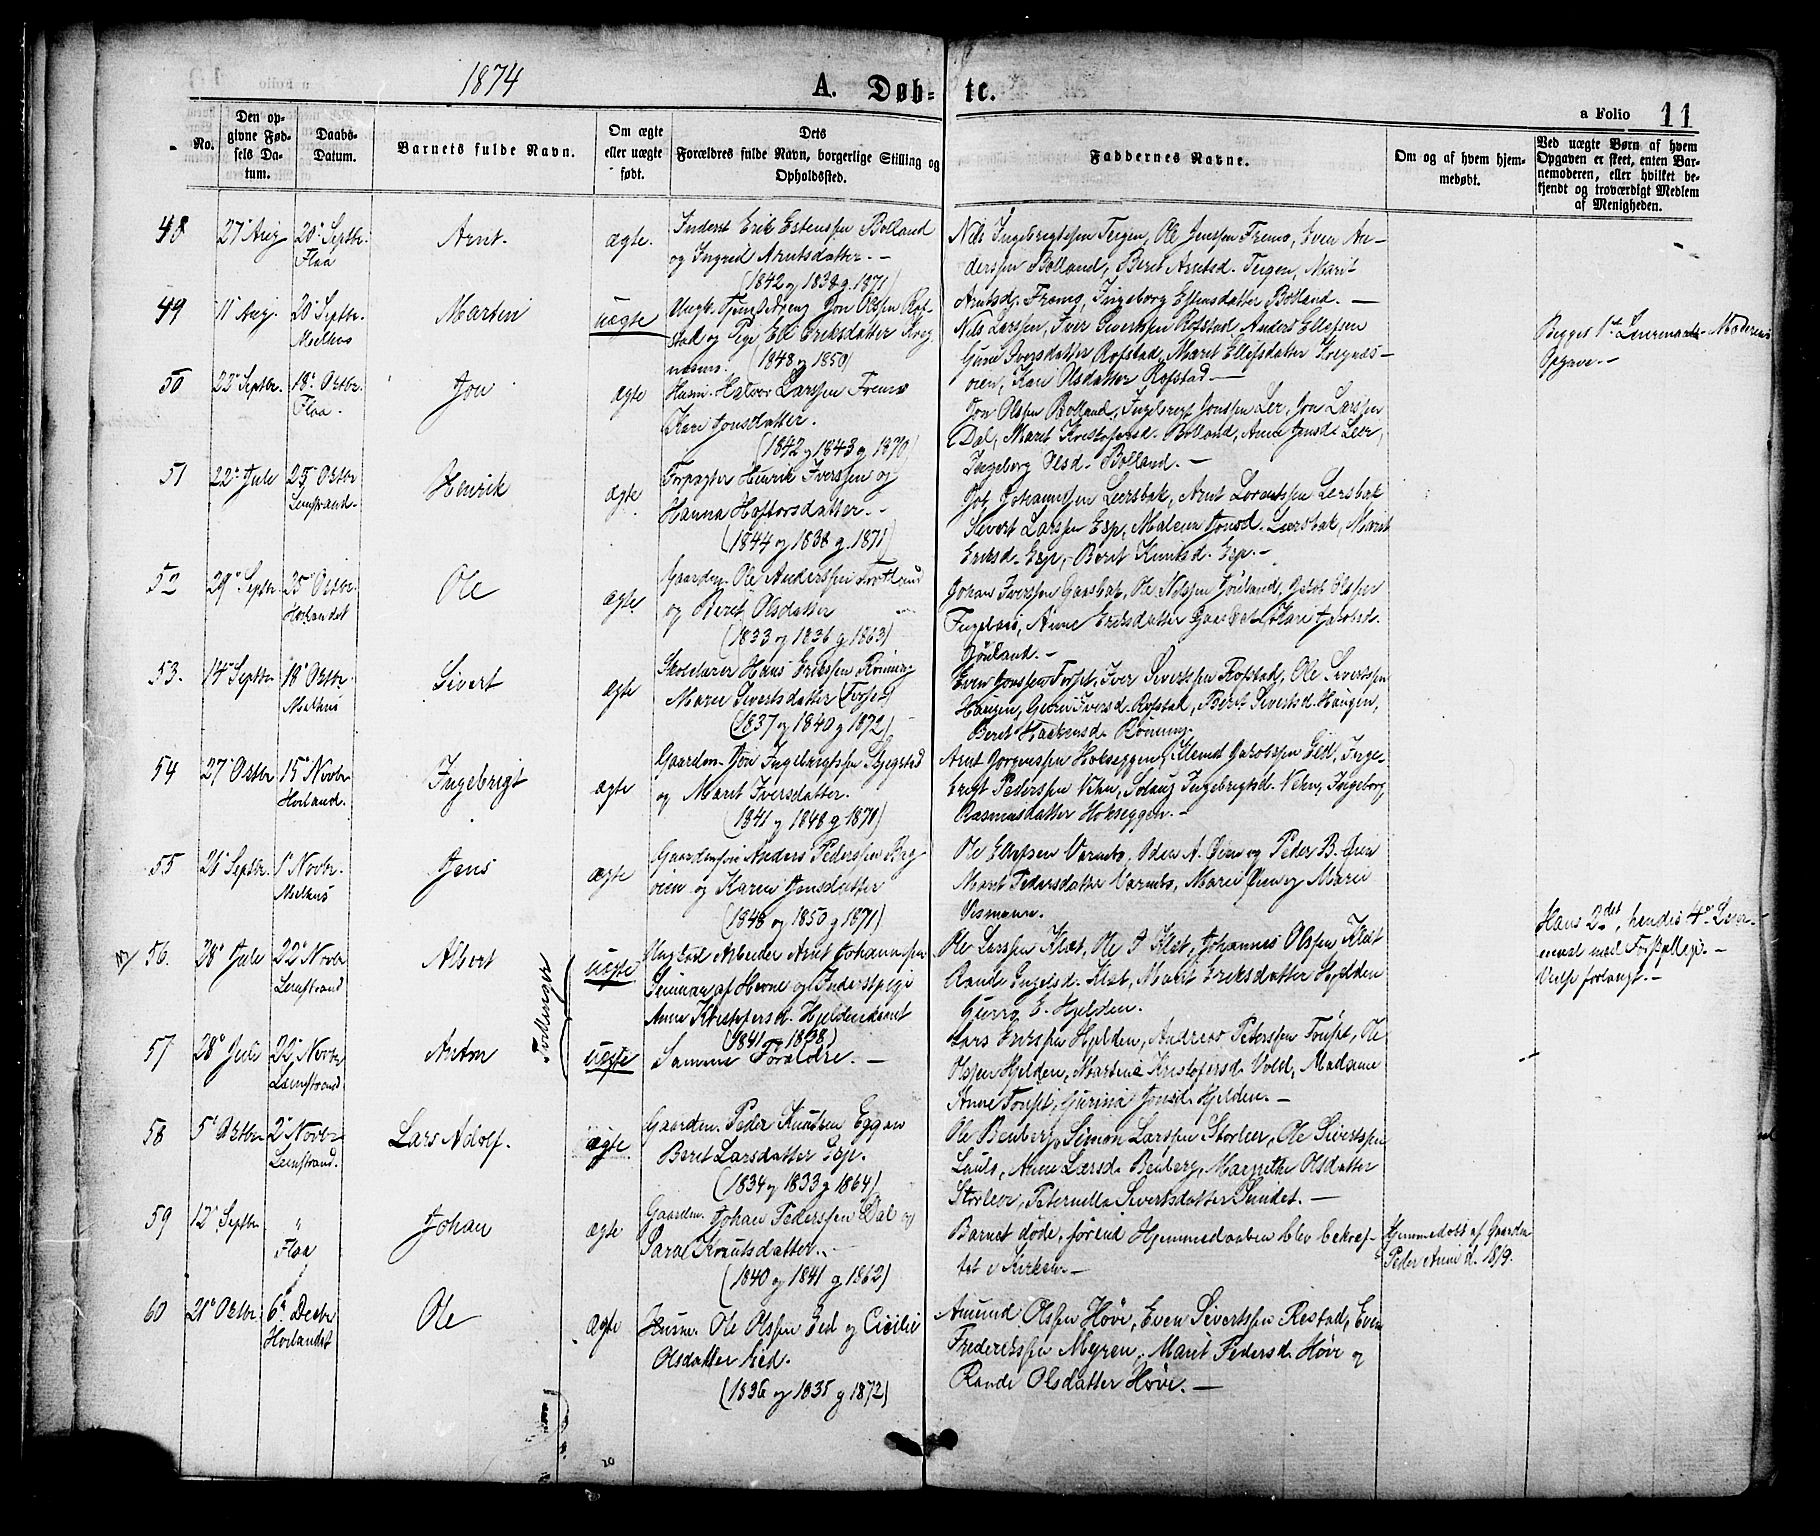 1874
A. Døb- te.
a Folio 11
No.
Den op-
givne Fød-
sels Da-
tum.
Daabs-
Datum.
Barnets fulde Navn.
Om ægte
eller uægte
født.
Dets
Forældres fulde Navn, borgerlige Stilling og
Opholdssted.
Faddernes Navne.
Om og af hvem hjem-
medøbt.
Ved uægte Børn af hvem
Opgaven er skeet, enten Bar-
nemoderen, eller hvilket be-
kjendt og troværdigt Medlem
af Menigheden.
48
27 Aug
20 Septbr.
Flaa
Arnt.
ægte.
Inderst Erik Estenssen Bolland
og Ingrid Arntsdatter. —
(1842 og 1838 g. 1871)
Nils Ingebrigtssen Teigen, Ole Jenssen Fremo, Even An-
derssen Bolland, Beret Arntsd. Teigen, Marit
Arntsd. Fremo, Ingeborg Estensdatter Bolland. —
49
11 Aug.
20 Septbr.
Melhus
Martin
uægte
Ungk. Tjenestedreng Jon Olssen Rof-
stad og Pige Eli Eriksdatter
(1848 og 1850)
Nils Larssen, Iver Sivertssen Rofstad, Anders Ellefsen
Guru Iversdatter Rofstad, Marit Ellefsdatter
øien, Kari Olsdatter Rofstad. —
Begges 1ste Leiermaal. Moderens
Opgave. —
50
22 Septbr.
18 Octbr.
Flaa.
Jon
ægte
Husm. Halvor Larssen Fremo
Kari Jonsdatter.
(1842 og 1843 g 1870)
Jon Olssen Bolland, Ingebrigt Jonssen Ler, Jon Larssen
Dal, Marit Kristofersd. Bolland, Anne Jonsd. Leer,
Ingeborg Olsd. Bolland. —
51
22 Juli
25 Octbr
Leinstrand.
Henrik
ægte
Forpagter Henrik Iverssen og
Hanna Haftorsdatter. —
(1844 og 1838 g. 1871)
Johannessen Leersbak, Arnt Lorentssen Lersbak
Sivert Larssen Esp, Malena Jonsd. Leersbak, Marit
Eriksd. Esp, Berit Knutsd. Esp. —
52
29 Septbr.
25 Octbr
Horlandet
Ole
ægte
Gaardm. Ole Anderssen
og Beret Olsdatter
(1833 og 1836 g 1863)
Johan Iverssen Gaasbak, Ole Nilssen Jonland, Olsser
Anne Eriksdatter Gaasbak, Kari Jakobsd.
Jonland. —
53.
14 Septbr
18 Octbr.
Melhus
Sivert
ægte
Skolelærer Hans Erikssen Röning
Marie Sivertsdatter (Forset)
(1837 og 1840 g 1872)
Even Jonssen Forset, Iver Sivertssen Rofstad, Ole Sivertssen
Haugen, Guru Iversd. Rofstad, Berit Sivertsd. Haugen,
Berit Haakensd. Röning.
54
27 Octbr
15 Novbr
Horland.
Ingebrigt
ægte
Gaardm. Jon Ingebrigtssen
og Marit Iversdatter.
(1841 og 1848 g 1870)
Arnt Jorgenssen Hokseggen, Jakobssen Ged, Inge-
brigt Pederssen Vehn, Solaug Ingebrigtsd. Vehn, Ingeborg
Rasmusdatter Hokseggen. —
55
26 Septbr.
1 Novbr.
Melhus
Jens
ægte
Gaardm. Anders Pederssen Bag-
øien og Karen Jonsdatter
(1848 og 1850 g 1871)
Ole Ellefsen Varmbo, Oden A. Øien og Peder B. Øien
Marit Pedersdatter Varmbo, Marie Øien og Marie
Vismann.
56.
28 Juli
22 Novbr
Leinstrand
Albert
Tvillinger
uægte
Arbeider Arnt Johannssen
af Hevne og Inderstpige
Anne Hjeldenkammet
(1841 1838)
Ole Larssen Klæt, Ole Klæt, Johannes Olssen Klæt
Rande Ingelsd. Klæt, Marit Eriksdatter Hjelden
Gurro E. Hjelden.
Hans 2det, hendes 4de Leier-
maal med Forskjellige. —
forlangt. —
57
28 Juli
22 Novbr
Leinstrand
Anton
uægte
Samme Forældre. —
Lars Erikssen Hjelden, Andreas Peterssen Forset, Ole
Olssen Hjelden, Martina Kristofersd. Vold, Madame
Anne Forset, Gurina Jonsd. Hjelden. —
58
5 Octbr
2 Novbr
Leinstrand.
Lars Adolf.
ægte
Gaardm. Peder Knutsen Eggan
Beret Larsdatter Esp.
(1834 og 1833 g 1864)
Ole Benberg, Simon Larssen Storler, Ole Sivertssen
Anne Larsd. Benberg, Magnithe Olsdatter
Storler, Peternilla Sivertsdatter Sundet. —
59
12 Septbr
"
Flaa
Johan
ægte
Gaardm. Johan Pederssen Dal og
Sara Knutsdatter. —
(1840 og 1841 g 1862)
Barnet döde, förend Hjemmedaaben blev bekræf-
tet i Kirken. —
Hjemmedöbt af Gaardm
Peder d. 18/9.
60
21 Octbr
6 Decbr
Horlandet
Ole
ægte
Husm. Ole Olssen Ged og Cicilie
Olsdatter Gjed.
(1836 og 1835 g 1872)
Amund Olssen Höve, Even Sivertssen Restad, Even
Frederikssen Myren, Marit Pedersd. Höve og
Rande Olsdatter Höve. —